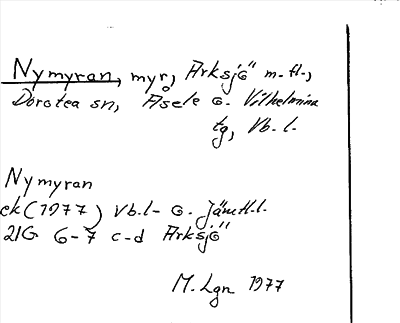 Nymyran, myr, Arksjö m. fl.,
Dorotea sn, Åsele o. Vilhelmina
tg, Vb. l.
Nymyran
ek (1977) Vb.l- o. Jämtl.l.
21G 6-7 c-d Arksjö
M. Lgn 1977